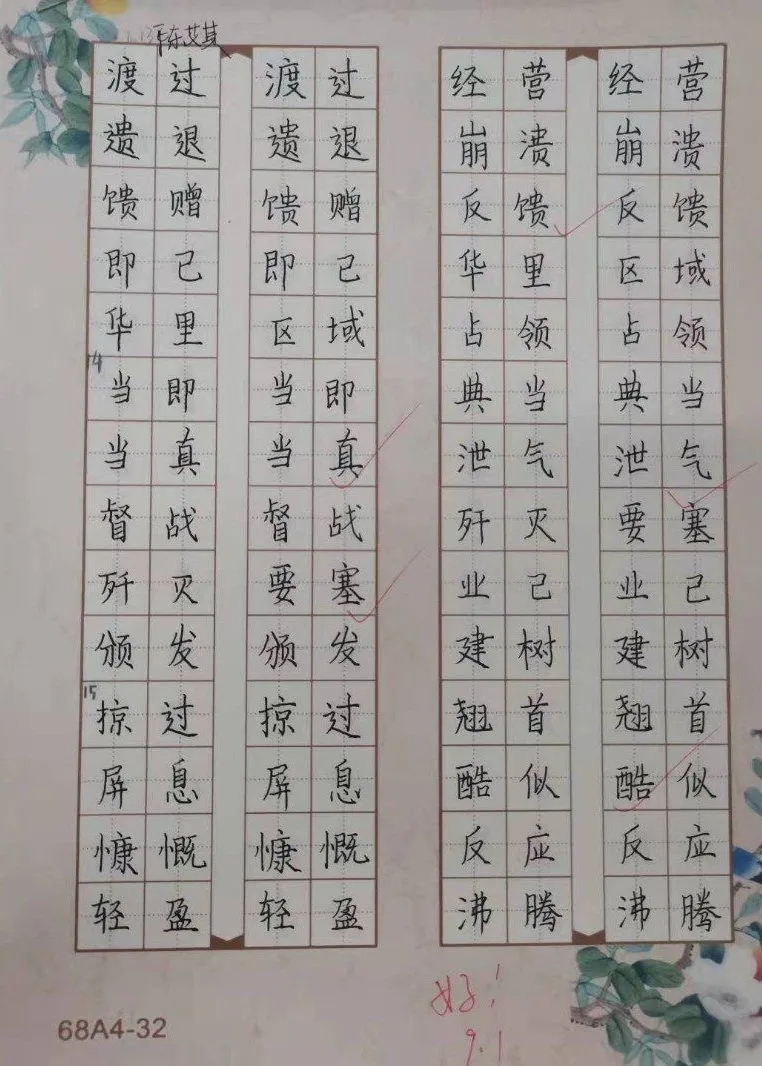 陈艾其
渡过 渡过 经营 经营
遗退 遗退 崩溃 崩溃
馈赠 馈赠 反馈 反馈
即已 即已 华里 区域
华里 区域 占领 占领
14 当即 当即 典当 典当
当真 当真 泄气 泄气
督战 督战 歼灭 要塞
歼灭 要塞 业已 业已
颁发 颁发 建树 建树
15 掠过 掠过 翘首 翘首
屏息 屏息 酷似 酷似
慷慨 慷慨 反应 反应
轻盈 轻盈 沸腾 沸腾
好!
9.1
68A4-32